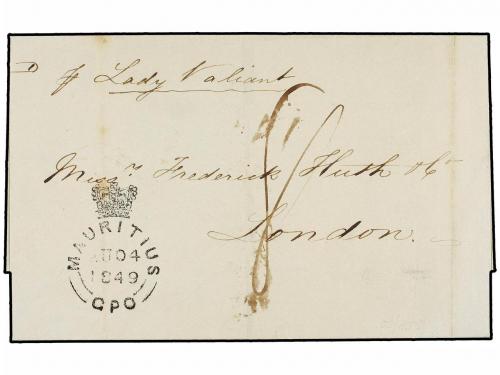 p Lady Valiant
Messrs Frederick Huth & Co
London.
MAURITIUS
AU 04
1849
GPO